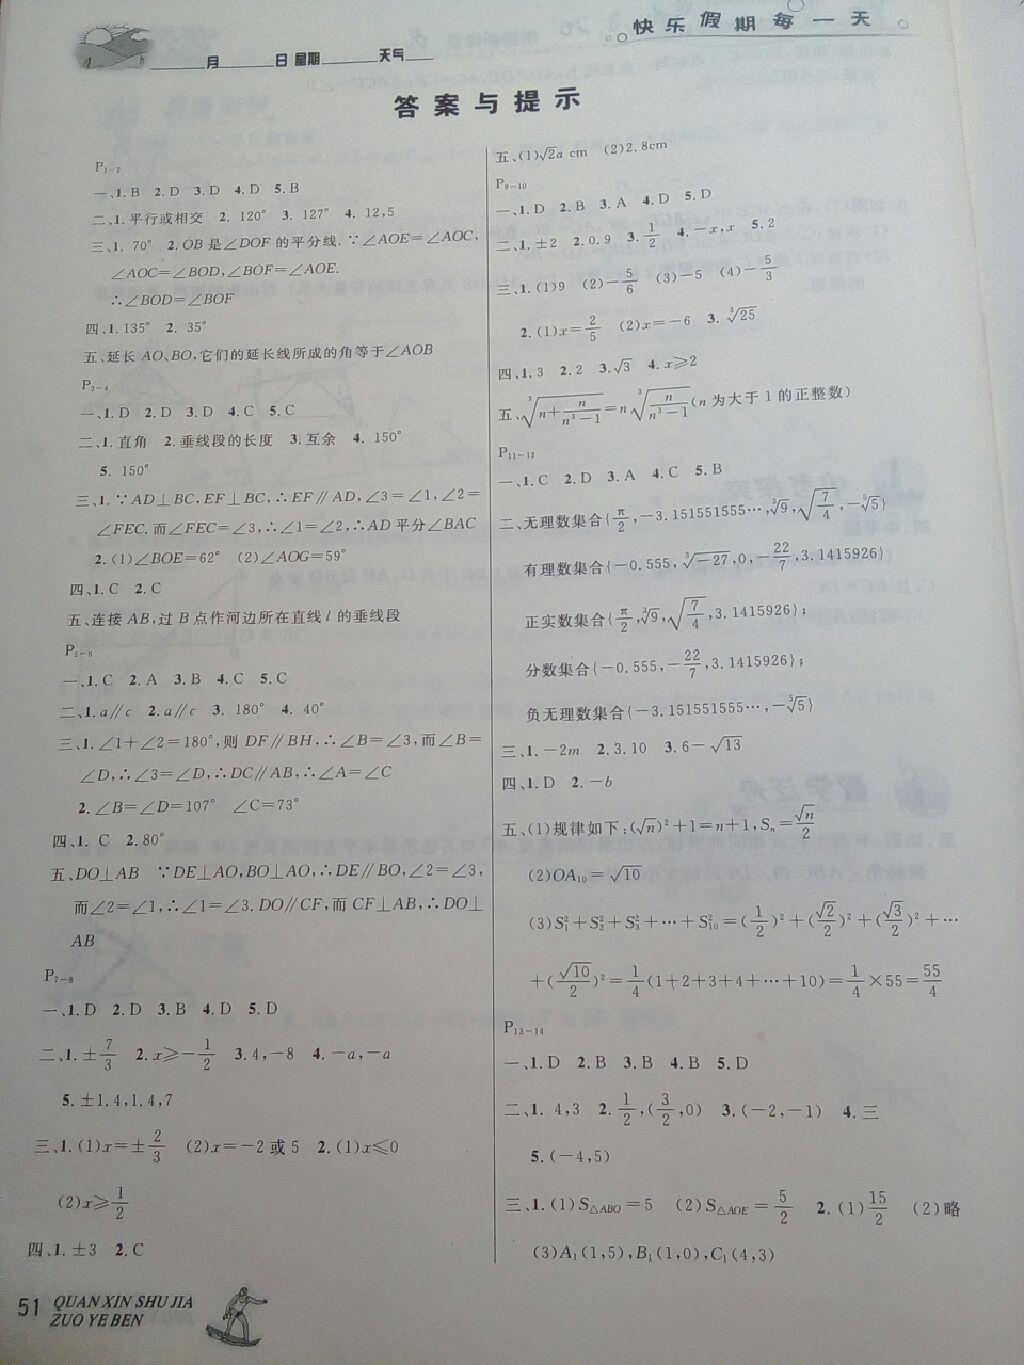 快乐假期每一天
月 日 星期 天气
答案与提示
P₁₋₂
一、1.B 2.D 3.D 4.D 5.B
二、1.平行或相交 2.120° 3.127° 4.12,5
三、1.70° 2.OB是∠DOF的平分线.∵∠AOE=∠AOC,
∠AOC=∠BOD,∠BOF=∠AOE.
∴∠BOD=∠BOF
四、1.135° 2.35°
五、延长AO、BO,它们的延长线所成的角等于∠AOB
P₃₋₄
一、1.D 2.D 3.D 4.C 5.C
二、1.直角 2.垂线段的长度 3.互余 4.150°
5.150°
三、1.∵AD⊥BC,EF⊥BC,∴EF∥AD,∠3=∠1,∠2=
∠FEC.而∠FEC=∠3,∴∠1=∠2,∴AD平分∠BAC
2.(1)∠BOE=62° (2)∠AOG=59°
四、1.C 2.C
五、连接AB,过B点作河边所在直线l的垂线段
P₅₋₆
一、1.C 2.A 3.B 4.C 5.C
二、1.a∥c 2.a∥c 3.180° 4.40°
三、1.∠1+∠2=180°,则DF∥BH,∴∠B=∠3,而∠B=
∠D,∴∠3=∠D,∴DC∥AB,∴∠A=∠C
2.∠B=∠D=107° ∠C=73°
四、1.C 2.80°
五、DO⊥AB ∵DE⊥AO,BO⊥AO,∴DE∥BO,∠2=∠3,
而∠2=∠1,∴∠1=∠3.DO∥CF,而CF⊥AB,∴DO⊥
AB
P₇₋₈
一、1.D 2.D 3.B 4.D 5.D
二、1.±7/3 2.x≥-1/2 3.4,-8 4.-a,-a
5.±1.4,1.4,7
三、1.(1)x=±2/3 (2)x=-2或5 2.(1)x≤0
(2)x≥1/2
四、1.±3 2.C
五、(1)√2a cm (2)2.8cm
P₉₋₁₀
一、1.D 2.B 3.A 4.D 5.D
二、1.±2 2.0.9 3.1/2 4.-x,x 5.2
三、1.(1)9 (2)-5/6 (3)-5 (4)-5/3
2.(1)x=2/5 (2)x=-6 3.∛25
四、1.3 2.2 3.√3 4.x≥2
五、∛(n+n/(n³-1))=n∛(n/(n³-1))(n为大于1的正整数)
P₁₁₋₁₂
一、1.C 2.D 3.A 4.C 5.B
二、无理数集合{π/2,-3.151551555…,∛9,√(7/4),-⁵√5}
有理数集合{-0,555,∛-27,0,-22/7,3.1415926}
正实数集合{π/2,∛9,√(7/4),3.1415926};
分数集合{-0.555,-22/7,3.1415926};
负无理数集合{-3.151551555…,-⁵√5}
三、1.-2m 2.3.10 3.6-√13
四、1.D 2.-b
五、(1)规律如下:(√n)²+1=n+1,Sₙ=√n/2
(2)OA₁₀=√10
(3)S₁²+S₂²+S₃²+…+S₁₀²=(1/2)²+(√2/2)²+(√3/2)²+…
+(√10/2)²=1/4(1+2+3+4+…+10)=1/4×55=55/4
P₁₃₋₁₄
一、1.D 2.B 3.B 4.B 5.D
二、1.4,3 2.1/2,(3/2,0) 3.(-2,-1) 4.三
5.(-4,5)
三、1.(1)S△ABO=5 (2)S△AOE=5/2 2.(1)15/2 (2)略
(3)A₁(1,5),B₁(1,0),C₁(4,3)
51 QUAN XIN SHU JIA
ZUO YE BEN